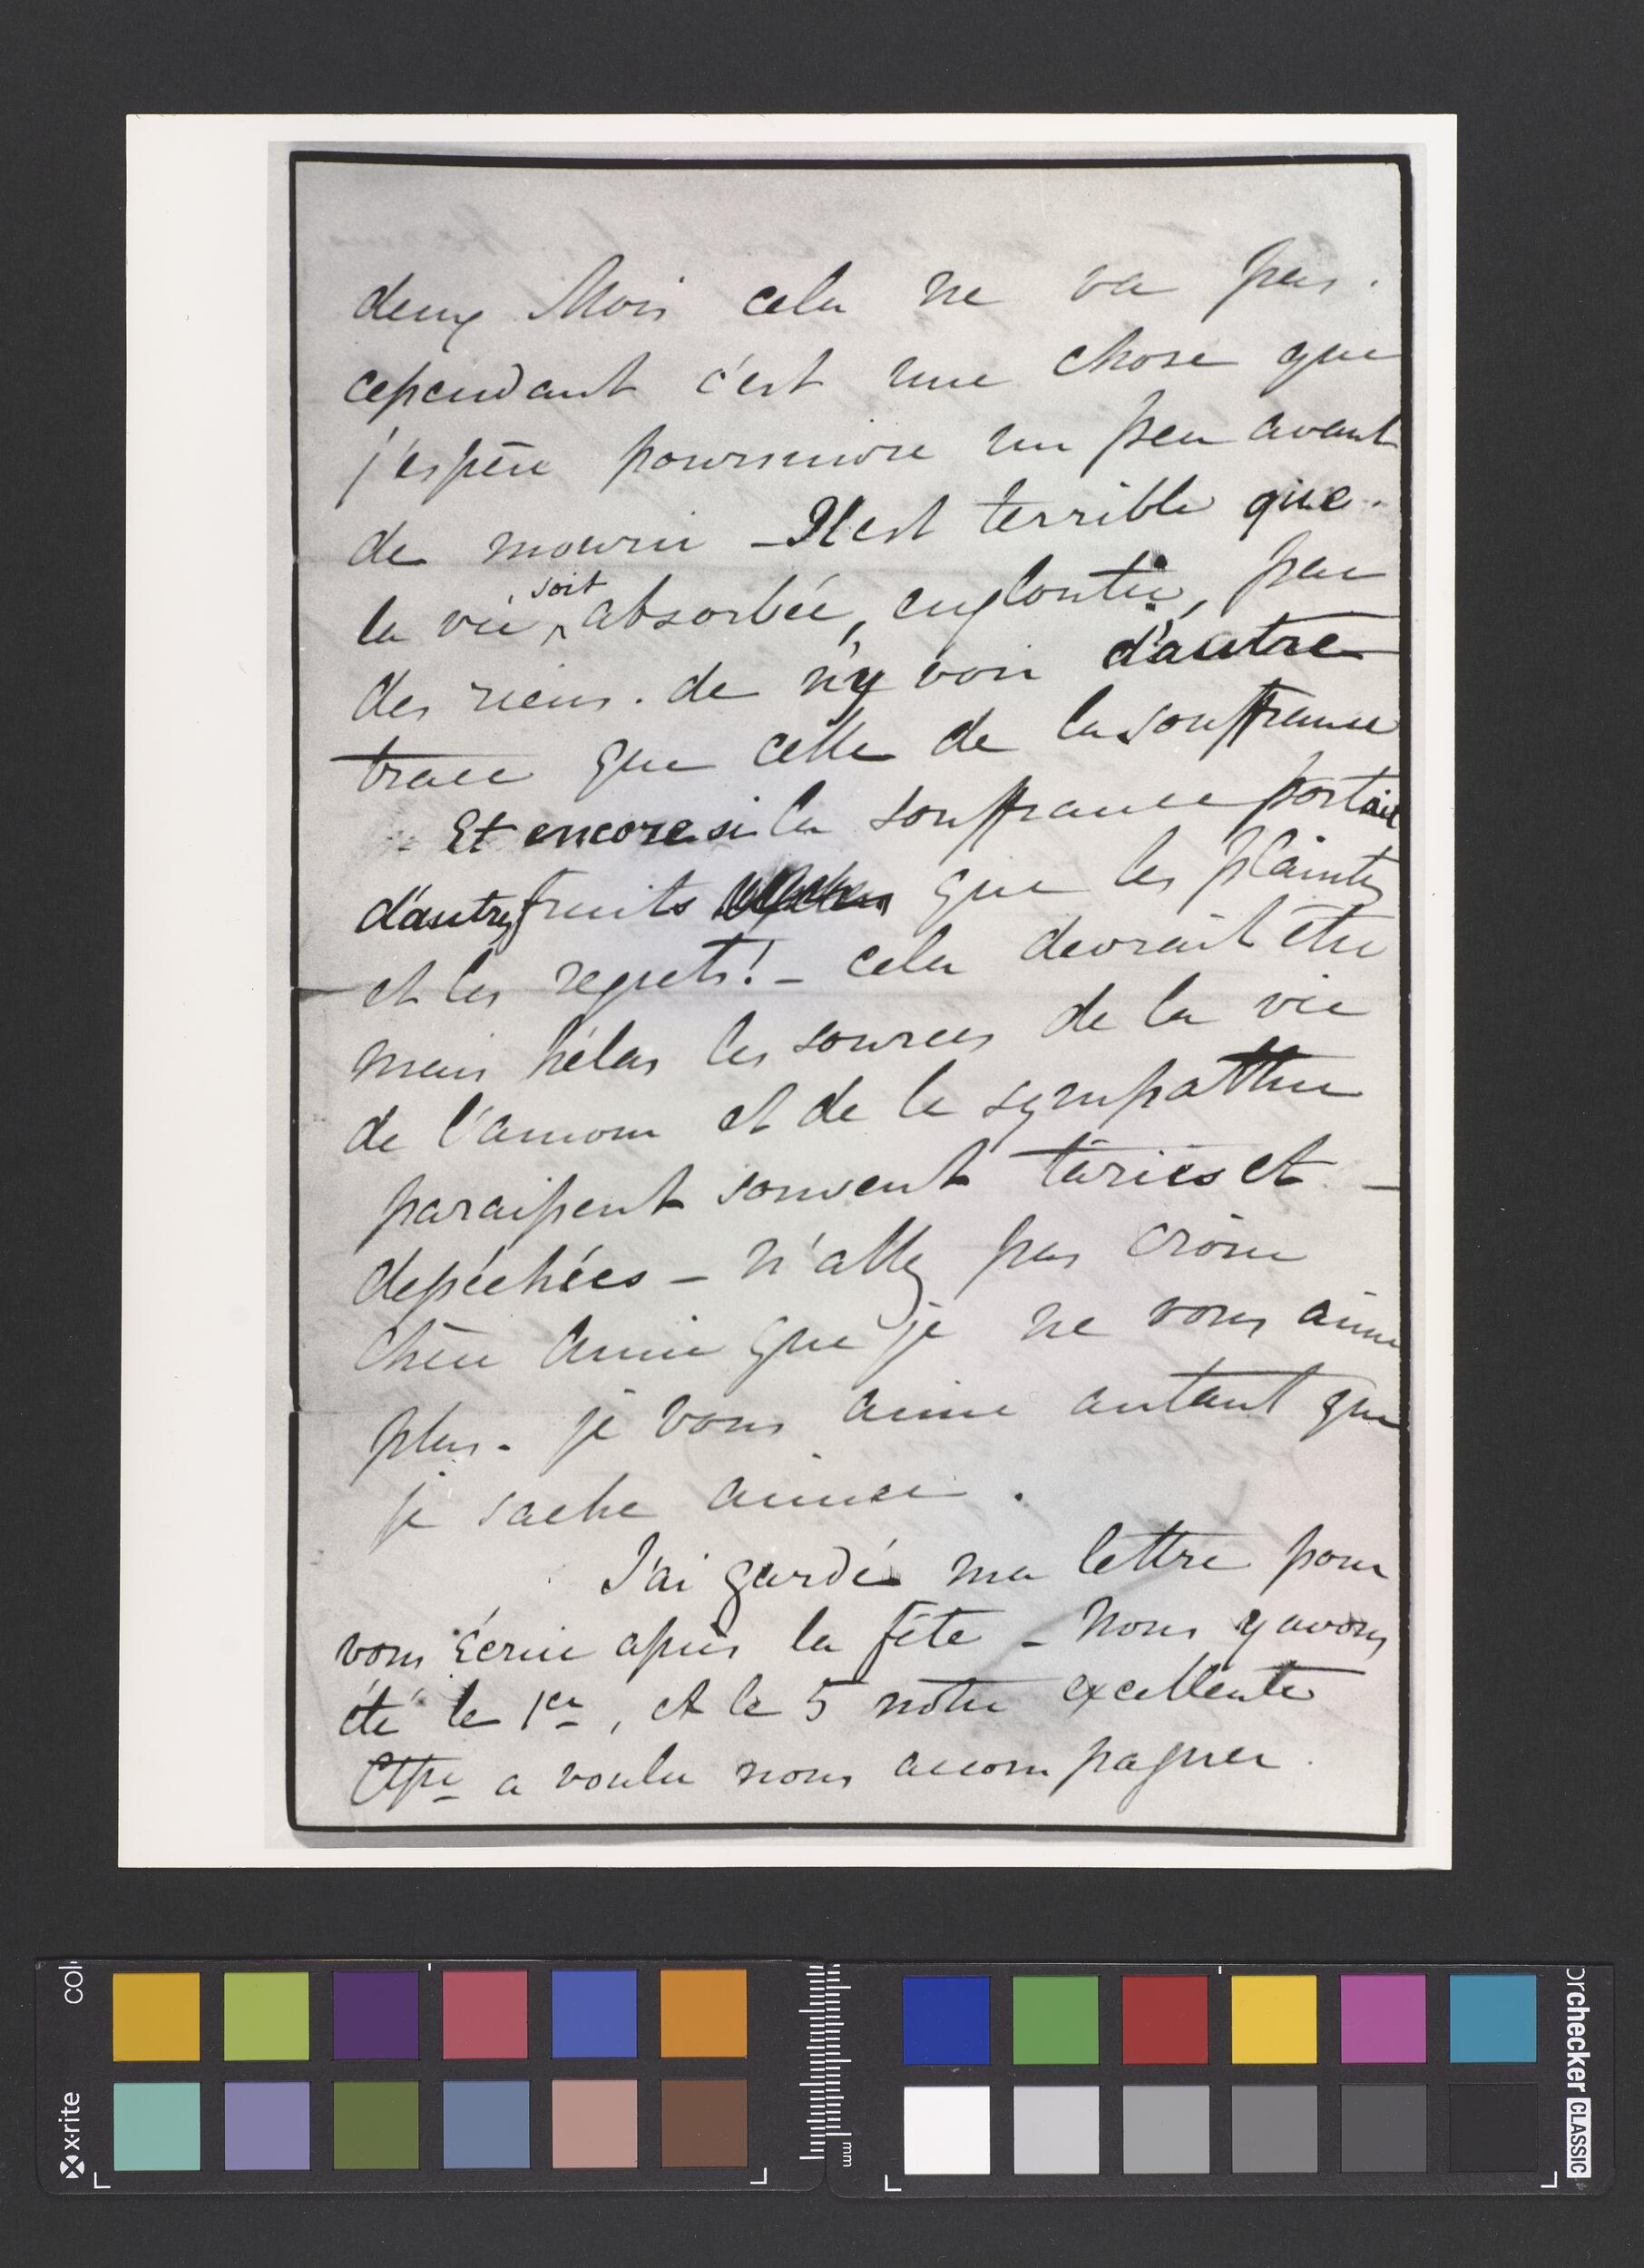 deux Mois cela ne va pas.
cependant c'est une chose que
j'espère poursuivre un peu avant
de mourir - Il est terrible que
la vie, soit absorbée, engloutie, par
des riens. de n'y voir d'autre
trace que celle de la souffrance
Et encore si la souffrance portait
d'autres fruits que les plaintes
et les regrets! - cela devrait être
mais hélas les sources de la vie
de l'amour et de la sympathie
paraissent souvent taries et -
depéchées - n'allez pas croire
chère amie que je ne vous aime
plus. je vous aime autant que
je sache aimer.
J'ai gardé ma lettre pour
vous écrire après la fête - Nous y avons
été le 1er, et le 5 notre excellente
a voulu nous accompagner.
colo
x·rite
mm
orchecker CLASSIC